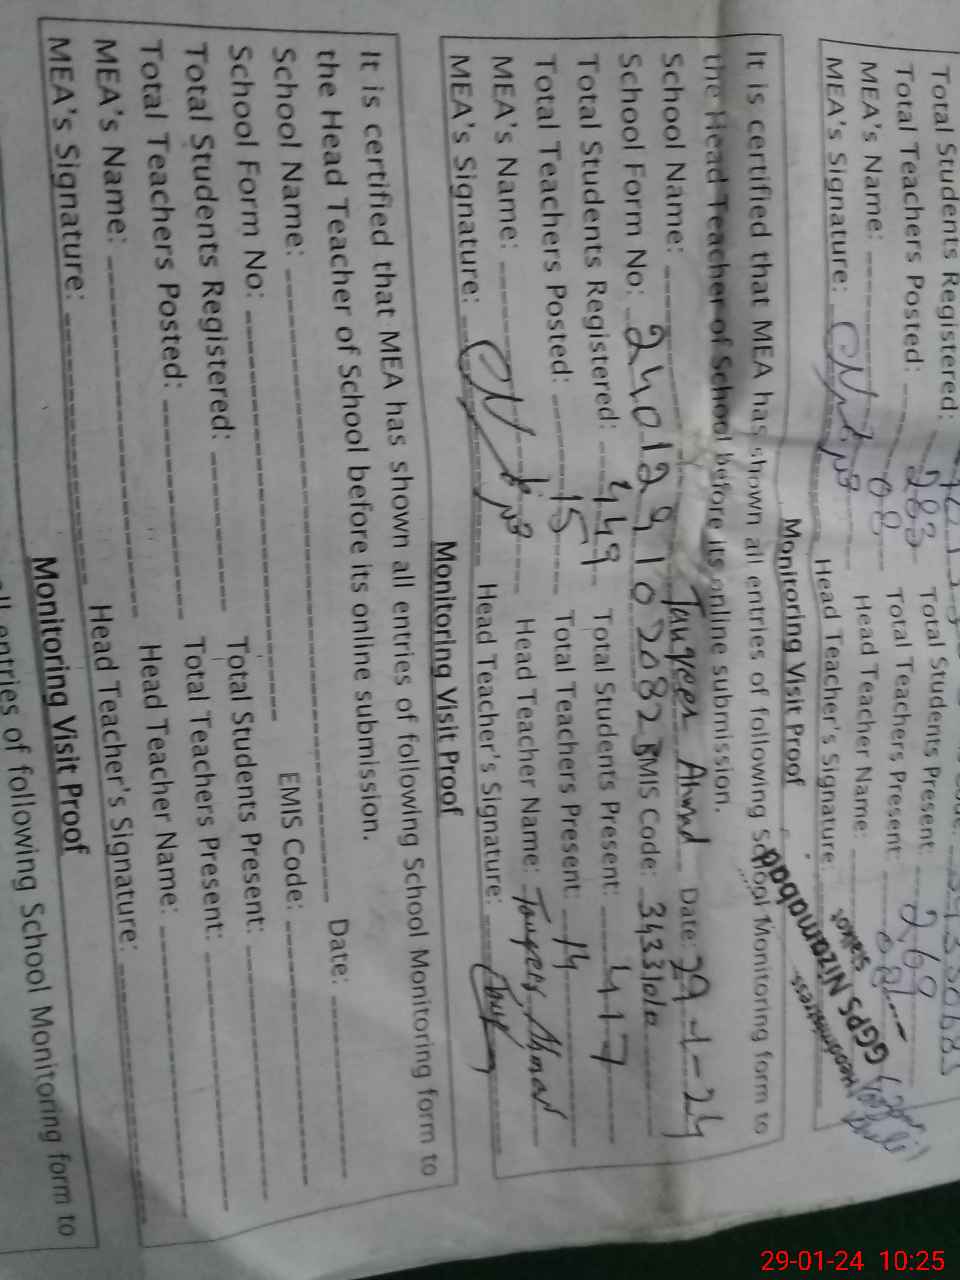 Total Students Registered: Total Students Present:
Total Teachers Posted: 283 Total Teachers Present: 269
MEA's Name: 08 Head Teacher Name: 08
MEA's Signature: Head Teacher's Signature:
Headmistress
GGPS Nizamabad
Sialkot
Monitoring Visit Proof
It is certified that MEA has shown all entries of following School Monitoring form to
the Head Teacher of School before its online submission.
School Name: Tauqeer Ahmad Date: 29-1-24
School Form No: 2401291020823 EMIS Code: 34331010
Total Students Registered: 449 Total Students Present: 417
Total Teachers Posted: 15 Total Teachers Present: 14
MEA's Name: Head Teacher Name: Tauqeer Ahmad
MEA's Signature: Head Teacher's Signature:
Monitoring Visit Proof
It is certified that MEA has shown all entries of following School Monitoring form to
the Head Teacher of School before its online submission.
School Name: Date:
School Form No: EMIS Code:
Total Students Registered: Total Students Present:
Total Teachers Posted: Total Teachers Present:
MEA's Name: Head Teacher Name:
MEA's Signature: Head Teacher's Signature:
Monitoring Visit Proof
all entries of following School Monitoring form to
29-01-24 10:25